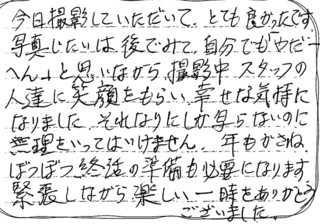 今日撮影していただいて、とても良かったです
写真じたいは、後でみて、自分でも「やだー
へん」と思いながら、撮影中スタッフの
人達に笑顔をもらい、幸せな気持に
なりました、それなりにしか写らないのに
無理をいってはいけません、年もかさね、
ぼつぼつ終活の準備も必要になります、
緊張しながら楽しい、一時をありがとう
ございました。